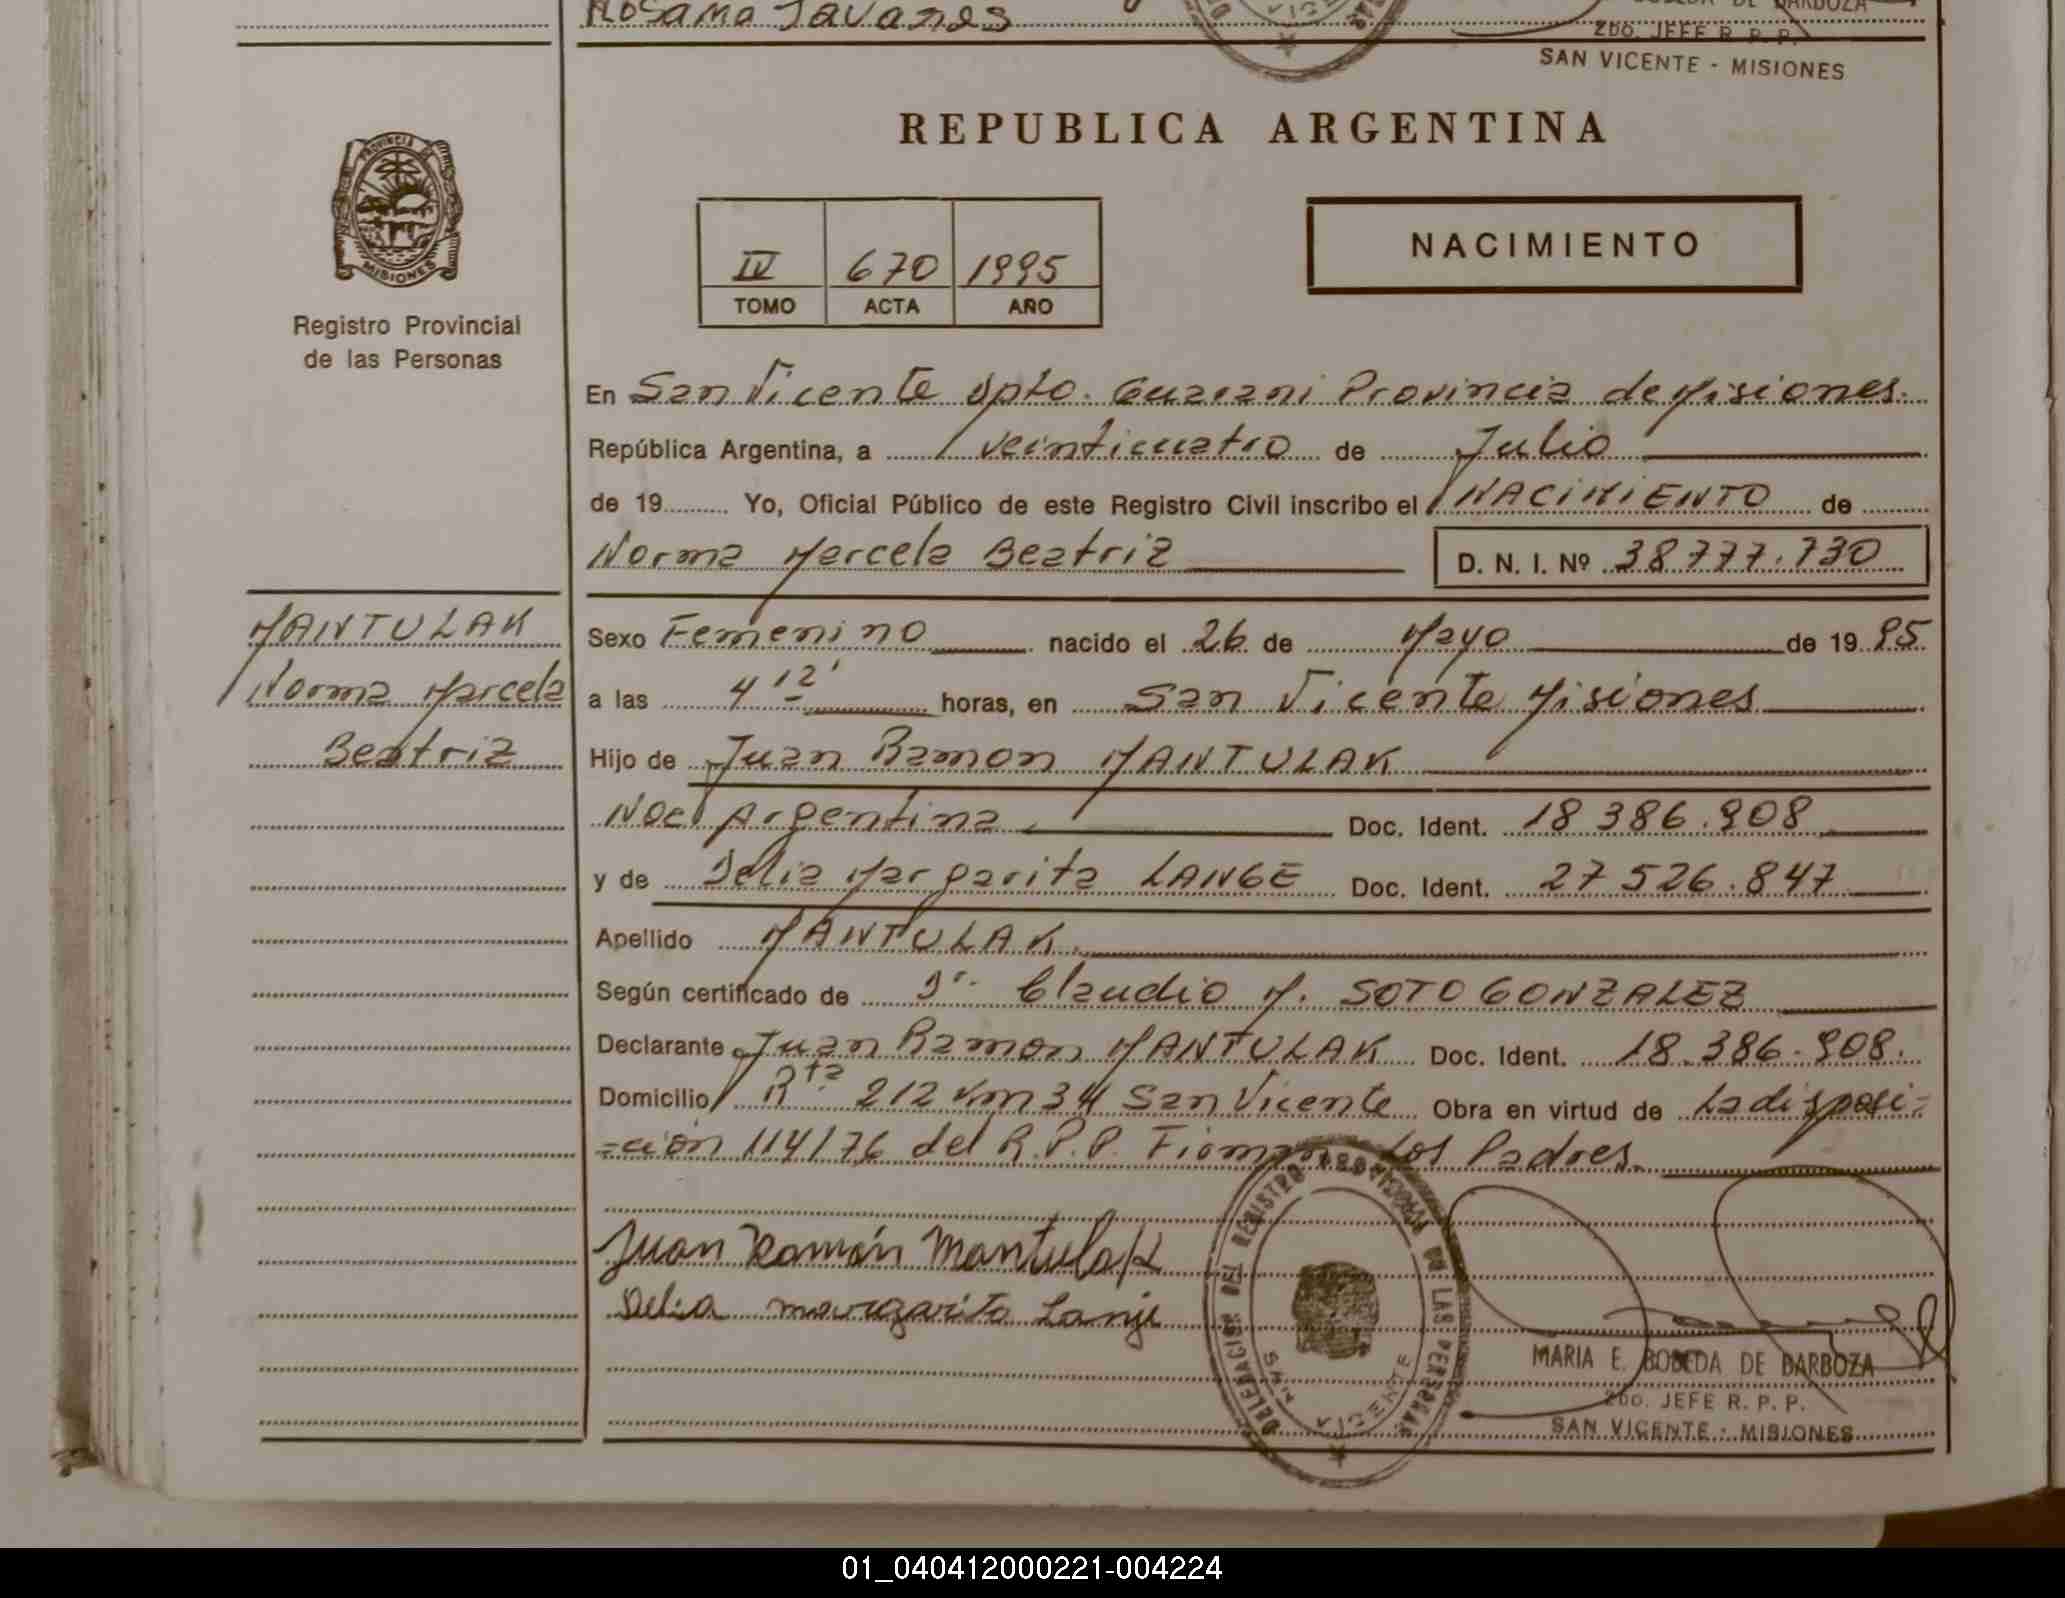 Rosana Tavares
BOBEDA DE BARBOZA
2DO. JEFE R. P. P.
SAN VICENTE - MISIONES
REPUBLICA ARGENTINA
PROVINCIA DE
MISIONES
Registro Provincial
de las Personas
IV 670 1995
TOMO ACTA AÑO
NACIMIENTO
En San Vicente Dpto. Guarani Provincia de Misiones.
República Argentina, a veinticuatro de Julio
de 19 Yo, Oficial Público de este Registro Civil inscribo el NACIMIENTO de
Norma Marcela Beatriz D. N. I. Nº 38777.730
MANTULAK
Norma Marcela
Beatriz
Sexo Femenino nacido el 26 de Mayo de 19 95
a las 4 12' horas, en San Vicente Misiones
Hijo de Juan Ramon MANTULAK
Nac. Argentina Doc. Ident. 18 386.908
y de Delia Margarita LANGE Doc. Ident. 27 526.847
Apellido MANTULAK
Según certificado de Dr. Claudio M. SOTO GONZALEZ
Declarante Juan Ramon MANTULAK Doc. Ident. 18.386.908.
Domicilio Rta 212 Km 34 San Vicente Obra en virtud de La disposi=
=ción 114/76 del R.P.P. Firman Los Padres.
Juan Ramón Mantulak
Delia margarita Lanje
DELEGACION DEL REGISTRO PROVINCIAL DE LAS PERSONAS
SAN VICENTE
MARIA E. BOBEDA DE BARBOZA
2DO. JEFE R. P. P.
SAN VICENTE - MISIONES
01_040412000221-004224